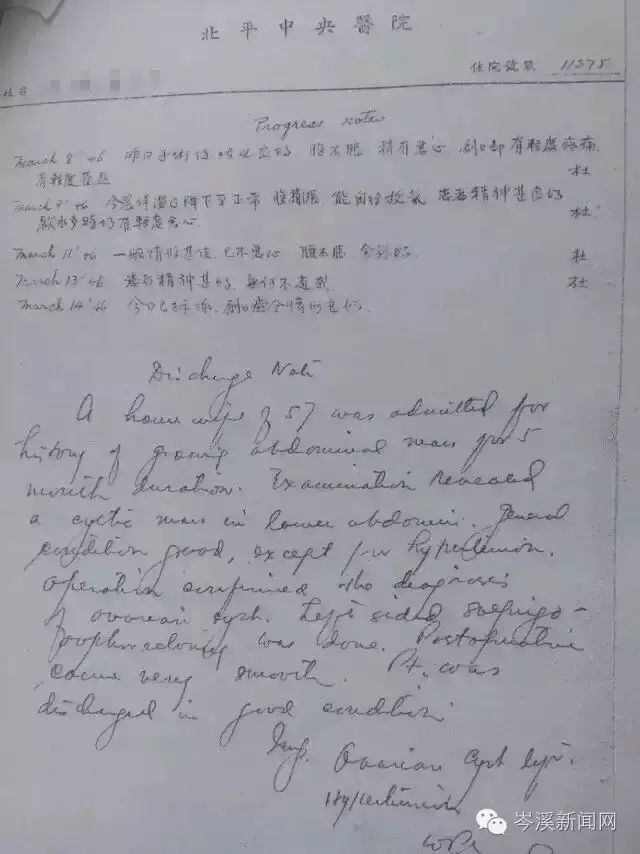 北平中央醫院
姓名
住院號數 11275
Progress Notes
March 8 '46 昨日手術後 良好 腹不脹 稍有惡心 創口部有輕度疼痛
有輕度 杜
March 9 '46 今晨体温已降下至正常 腹稍脹 能自行 患者精神甚良好
飲水多時仍有輕度惡心 杜
March 11 '46 一般情形甚佳 已不惡心 腹不脹 杜
March 13 '46 患者精神甚好 無何不適 杜
March 14 '46 今日已 創口 情形良好
Discharge Note
A house wife of 57 was admitted for
history of growing abdominal mass for 5
month duration. Examination revealed
a cystic mass in lower abdomen. General
condition good, except for hypertension.
Operation confirmed the diagnosis
of ovarian cyst. Left sided salpingo-
oophorectomy was done. Postoperative
course very smooth. Pt. was
discharged in good condition.
Ovarian cyst left.
Hypertension
岑溪新闻网